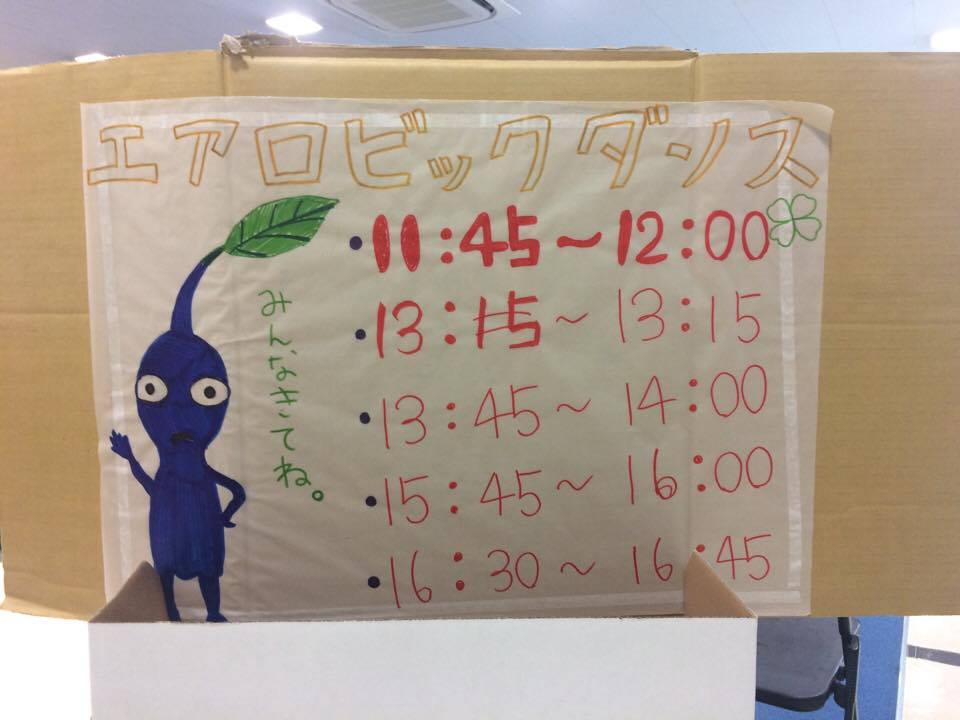 エアロビックダンス
みんなきてね。
・11:45～12:00
・13:15～13:15
・13:45～14:00
・15:45～16:00
・16:30～16:45